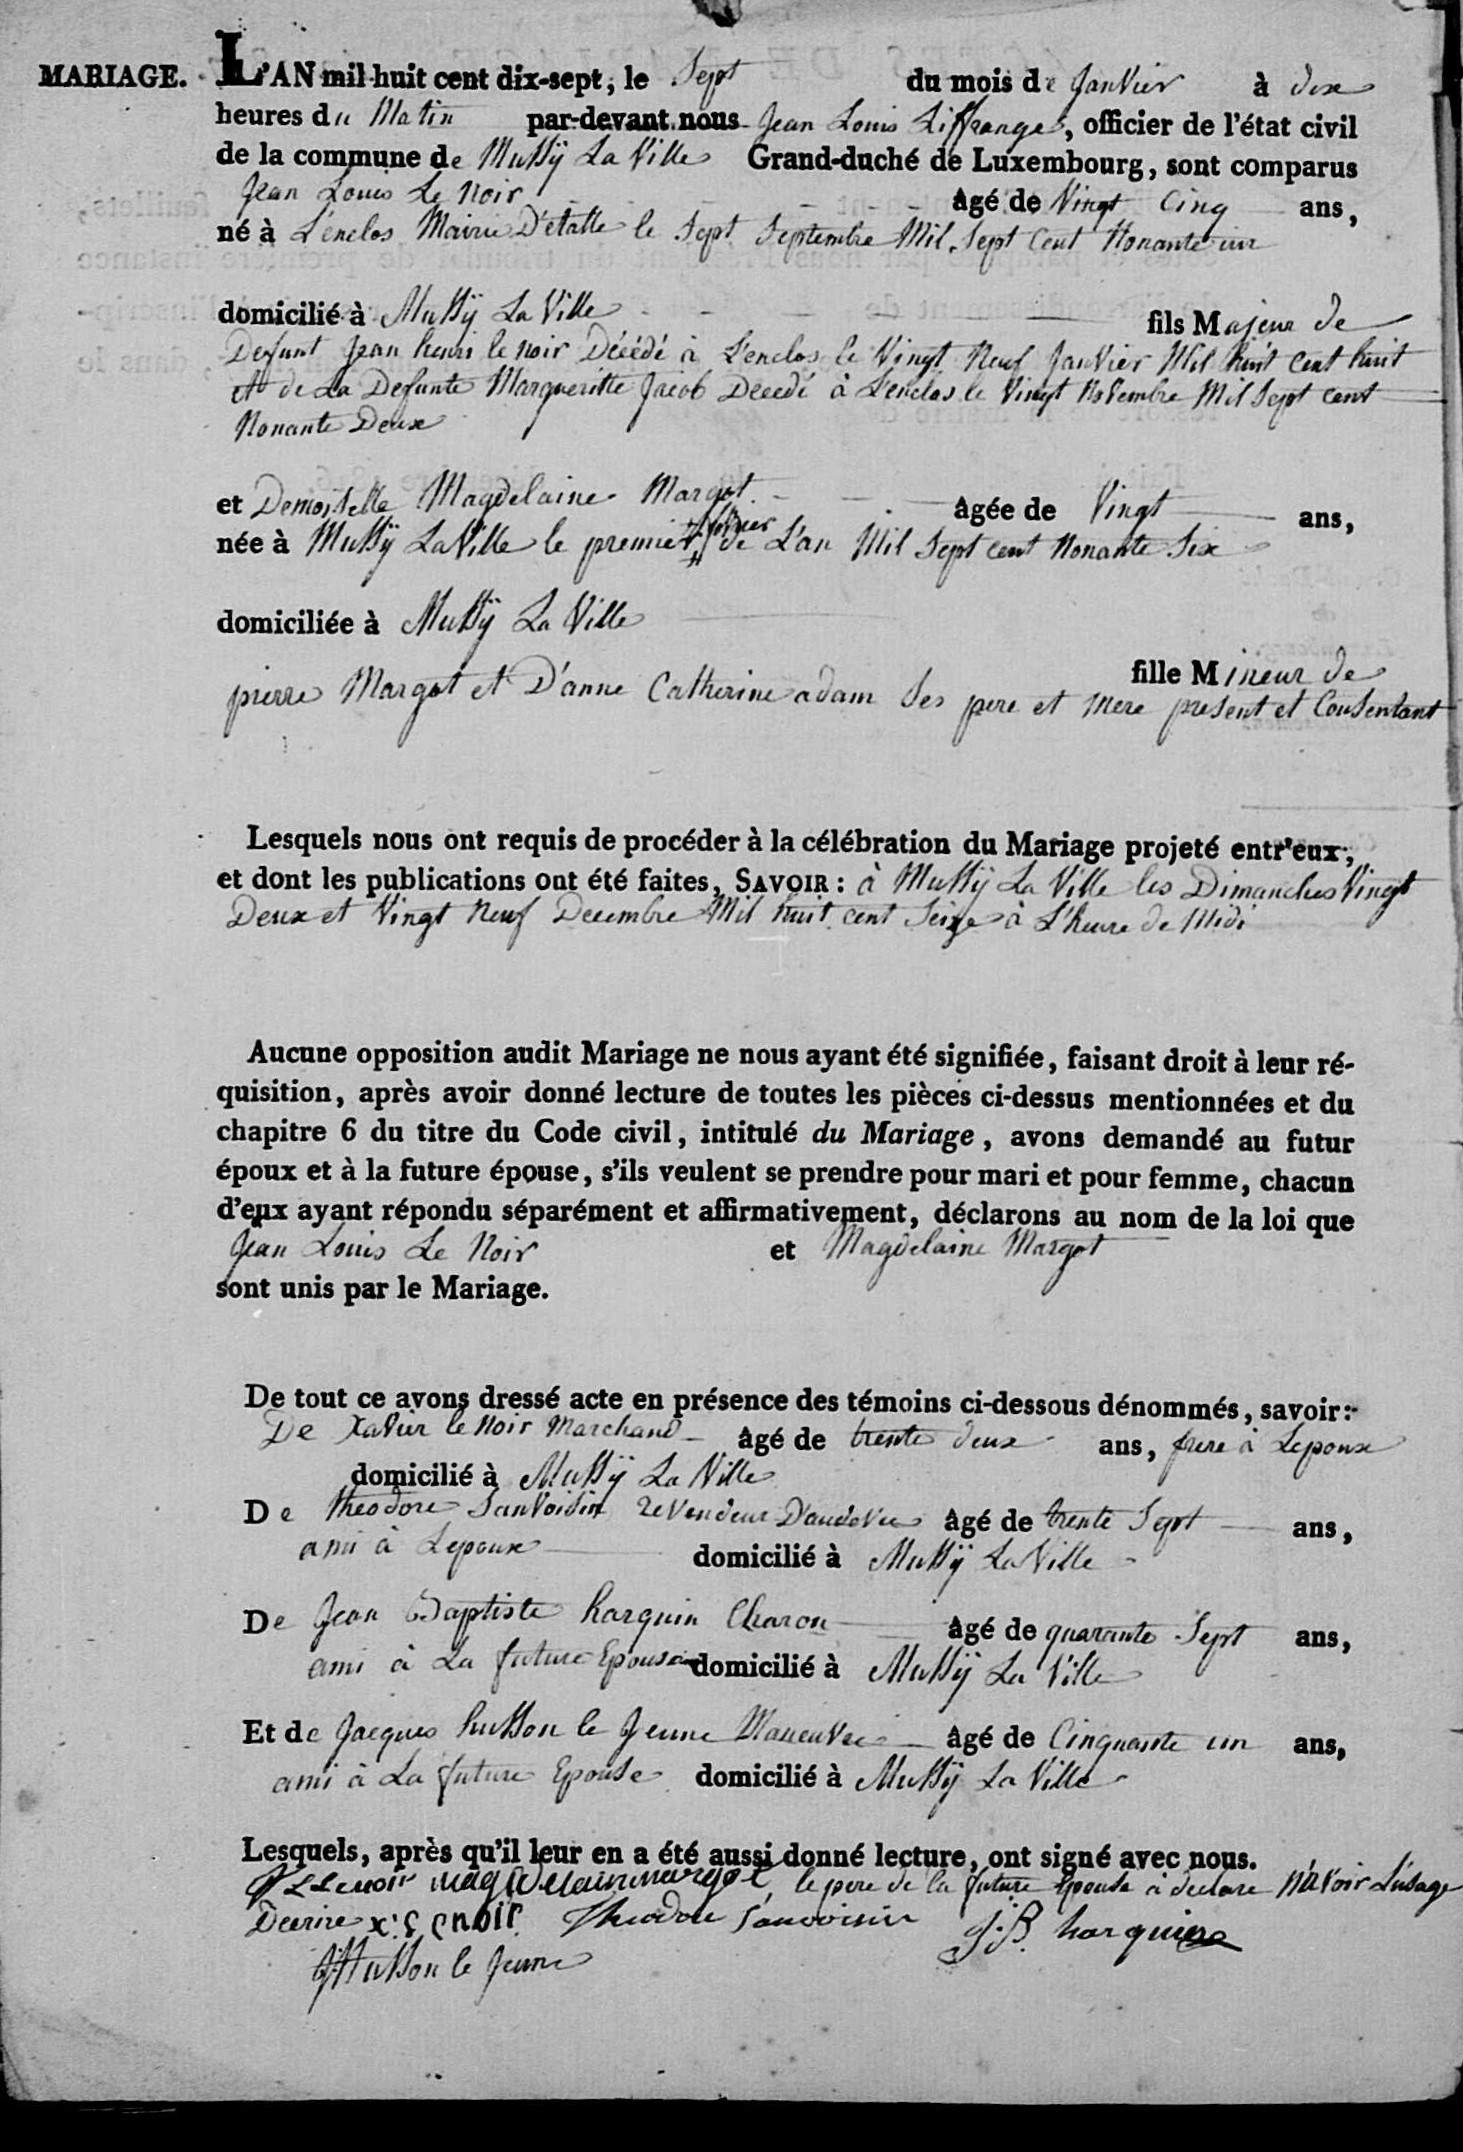 MARIAGE. L'AN mil huit cent dix-sept, le Sept du mois de Janvier à dix
heures du Matin par-devant nous Jean Louis Liffrange, officier de l'état civil
de la commune de Mussÿ La Ville Grand-duché de Luxembourg, sont comparus
Jean Louis Le Noir âgé de Vingt Cinq ans,
né à L'enclos Mairie D'étalle le Sept Septembre Mil Sept Cent Nonante un
domicilié à Mussÿ La Ville fils Majeur de
Defunt Jean henri le noir Décédé à L'enclos le Vingt Neuf Janvier Mil huit Cent huit
et de La Defunte Margueritte Jacob Decedé à L'enclos le Vingt Novembre Mil Sept cent
Nonante Deux
et Demoiselle Magdelaine Margot âgée de Vingt ans,
née à Mussÿ La Ville le premier fevrier de L'an Mil Sept cent Nonante Six
domiciliée à Mussÿ La Ville
fille Mineur de
pierre Margot et D'anne Catherine adam Ses pere et Mere present et Consentant
Lesquels nous ont requis de procéder à la célébration du Mariage projeté entr'eux;
et dont les publications ont été faites, SAVOIR : à Mussÿ La Ville les Dimanches Vingt
Deux et Vingt Neuf Decembre Mil huit cent Seize à L'heure de Midi
Aucune opposition audit Mariage ne nous ayant été signifiée, faisant droit à leur ré-
quisition, après avoir donné lecture de toutes les pièces ci-dessus mentionnées et du
chapitre 6 du titre du Code civil, intitulé du Mariage, avons demandé au futur
époux et à la future épouse, s'ils veulent se prendre pour mari et pour femme, chacun
d'eux ayant répondu séparément et affirmativement, déclarons au nom de la loi que
Jean Louis Le Noir et Magdelaine Margot
sont unis par le Mariage.
De tout ce avons dressé acte en présence des témoins ci-dessous dénommés, savoir :
De Xavier le Noir Marchand âgé de trente deux ans, frere à Lepoux
domicilié à Mussÿ La Ville
De theodore Sanvoisin revendeur âgé de trente Sept ans,
ami à Lepoux domicilié à Mussÿ La Ville
De Jean Baptiste harquin Charon âgé de quarante Sept ans,
ami à La future Epouse domicilié à Mussÿ La Ville
Et de Jacques husson le Jeune Maneuvre âgé de Cinquante un ans,
ami à La future Epouse domicilié à Mussÿ La Ville
Lesquels, après qu'il leur en a été aussi donné lecture, ont signé avec nous.
J L Lenoir magdelainmargot le pere de la future Epouse à declare N'avoir L'usage
Decrire x: Lenoir Theodore Sanvoisin J.B. harquin
J Husson le Jeune